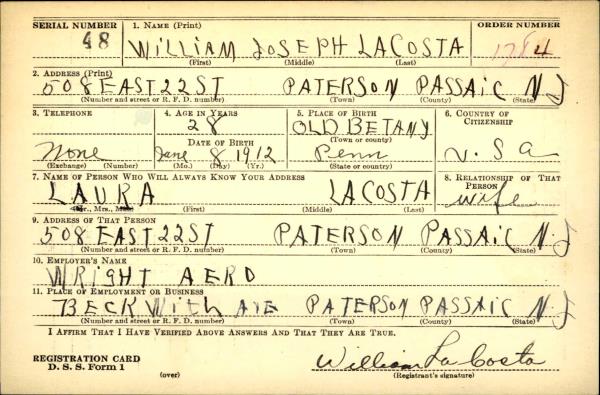 SERIAL NUMBER 1. NAME (Print) ORDER NUMBER
48 WILLIAM JOSEPH LACOSTA
(First) (Middle) (Last)
2. ADDRESS (Print)
508 EAST 22 ST PATERSON PASSAIC N J
(Number and street or R. F. D. number) (Town) (County) (State)
3. TELEPHONE 4. AGE IN YEARS 5. PLACE OF BIRTH 6. COUNTRY OF CITIZENSHIP
28 OLD BETANY
DATE OF BIRTH (Town or county)
None June 8 1912 Penn U. S a
(Exchange) (Number) (Mo.) (Day) (Yr.) (State or country)
7. NAME OF PERSON WHO WILL ALWAYS KNOW YOUR ADDRESS 8. RELATIONSHIP OF THAT PERSON
LAURA LACOSTA wife
(Mr., Mrs., Miss) (First) (Middle) (Last)
9. ADDRESS OF THAT PERSON
508 EAST 22 ST PATERSON PASSAIC N. J
(Number and street or R. F. D. number) (Town) (County) (State)
10. EMPLOYER'S NAME
WRIGHT AERO
11. PLACE OF EMPLOYMENT OR BUSINESS
BECKWITH AVE PATERSON PASSAIC N J
(Number and street or R. F. D. number) (Town) (County) (State)
I AFFIRM THAT I HAVE VERIFIED ABOVE ANSWERS AND THAT THEY ARE TRUE.
REGISTRATION CARD
D. S. S. Form 1 (over) William La Costa
(Registrant's signature)